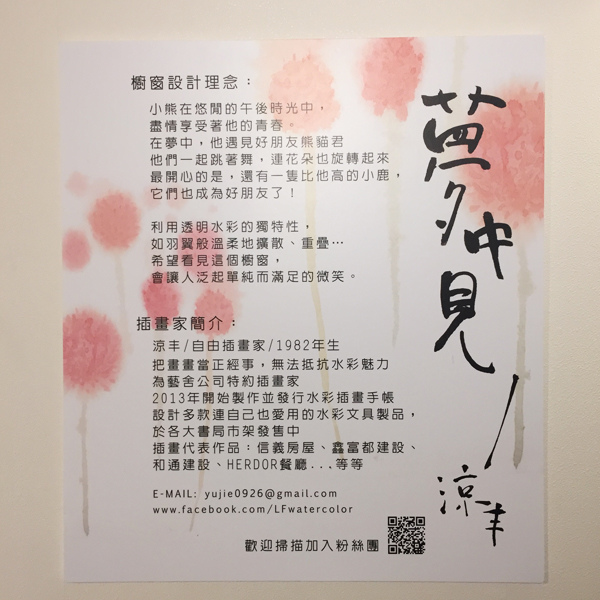 櫥窗設計理念：
小熊在悠閒的午後時光中，
盡情享受著他的青春。
在夢中，他遇見好朋友熊貓君
他們一起跳著舞，連花朵也旋轉起來
最開心的是，還有一隻比他高的小鹿，
它們也成為好朋友了！
利用透明水彩的獨特性，
如羽翼般溫柔地擴散、重疊…
希望看見這個櫥窗，
會讓人泛起單純而滿足的微笑。
插畫家簡介：
涼丰/自由插畫家/1982年生
把畫畫當正經事，無法抵抗水彩魅力
為藝舍公司特約插畫家
2013年開始製作並發行水彩插畫手帳
設計多款連自己也愛用的水彩文具製品，
於各大書局市架發售中
插畫代表作品：信義房屋、鑫富都建設、
和通建設、HERDOR餐廳...等等
E-MAIL: yujie0926@gmail.com
www.facebook.com/LFwatercolor
歡迎掃描加入粉絲團
夢中見
涼丰